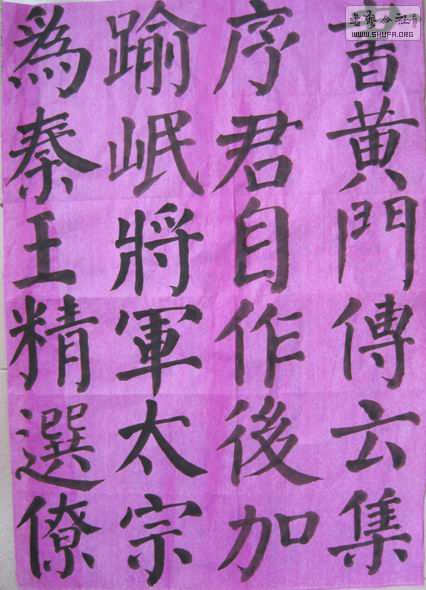 WWW.SHUFA.ORG
書黄門傳云集
序君自作後加
踰岷將軍太宗
為秦王精選僚